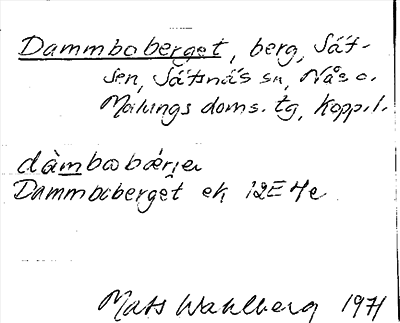 Dammboberget, berg, Sät-
sen, Sätsnäs sn, Nås o.
Malungs doms. tg, Kopp. l.
dàmbobǽrjeɩ
Dammboberget ek 12E 4e
Mats Wahlberg 1971